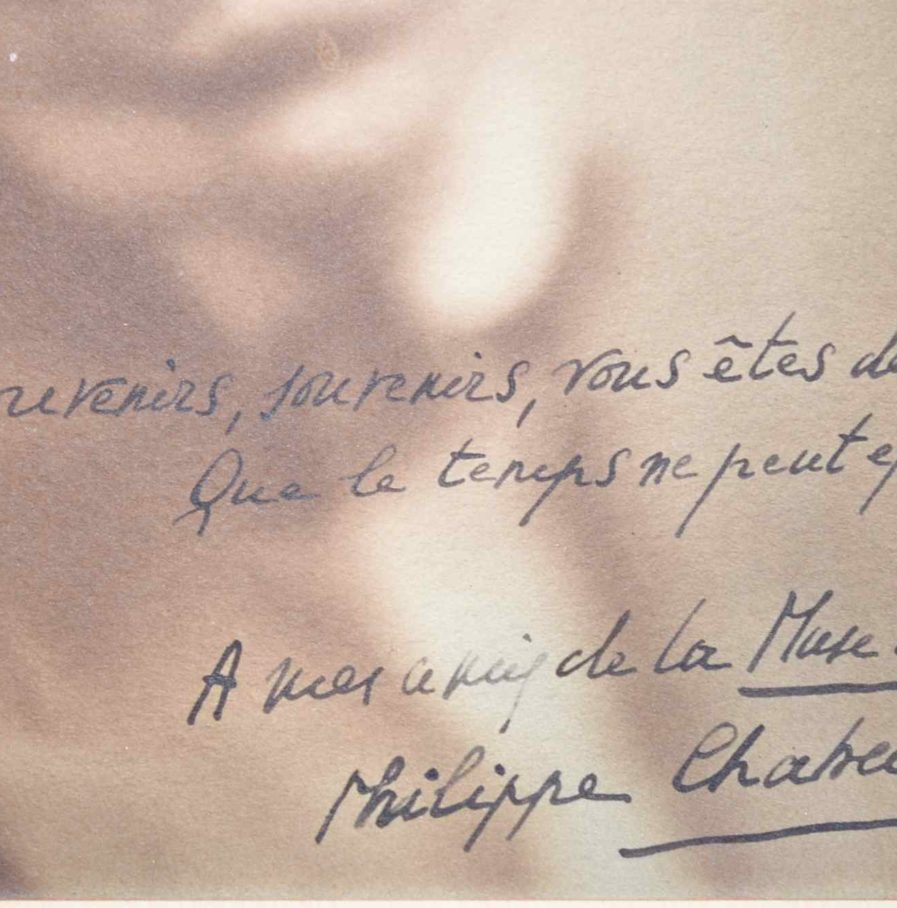 uvenirs, souvenirs, vous êtes de
Que le temps ne peut
A mes amis de la Muse
Philippe